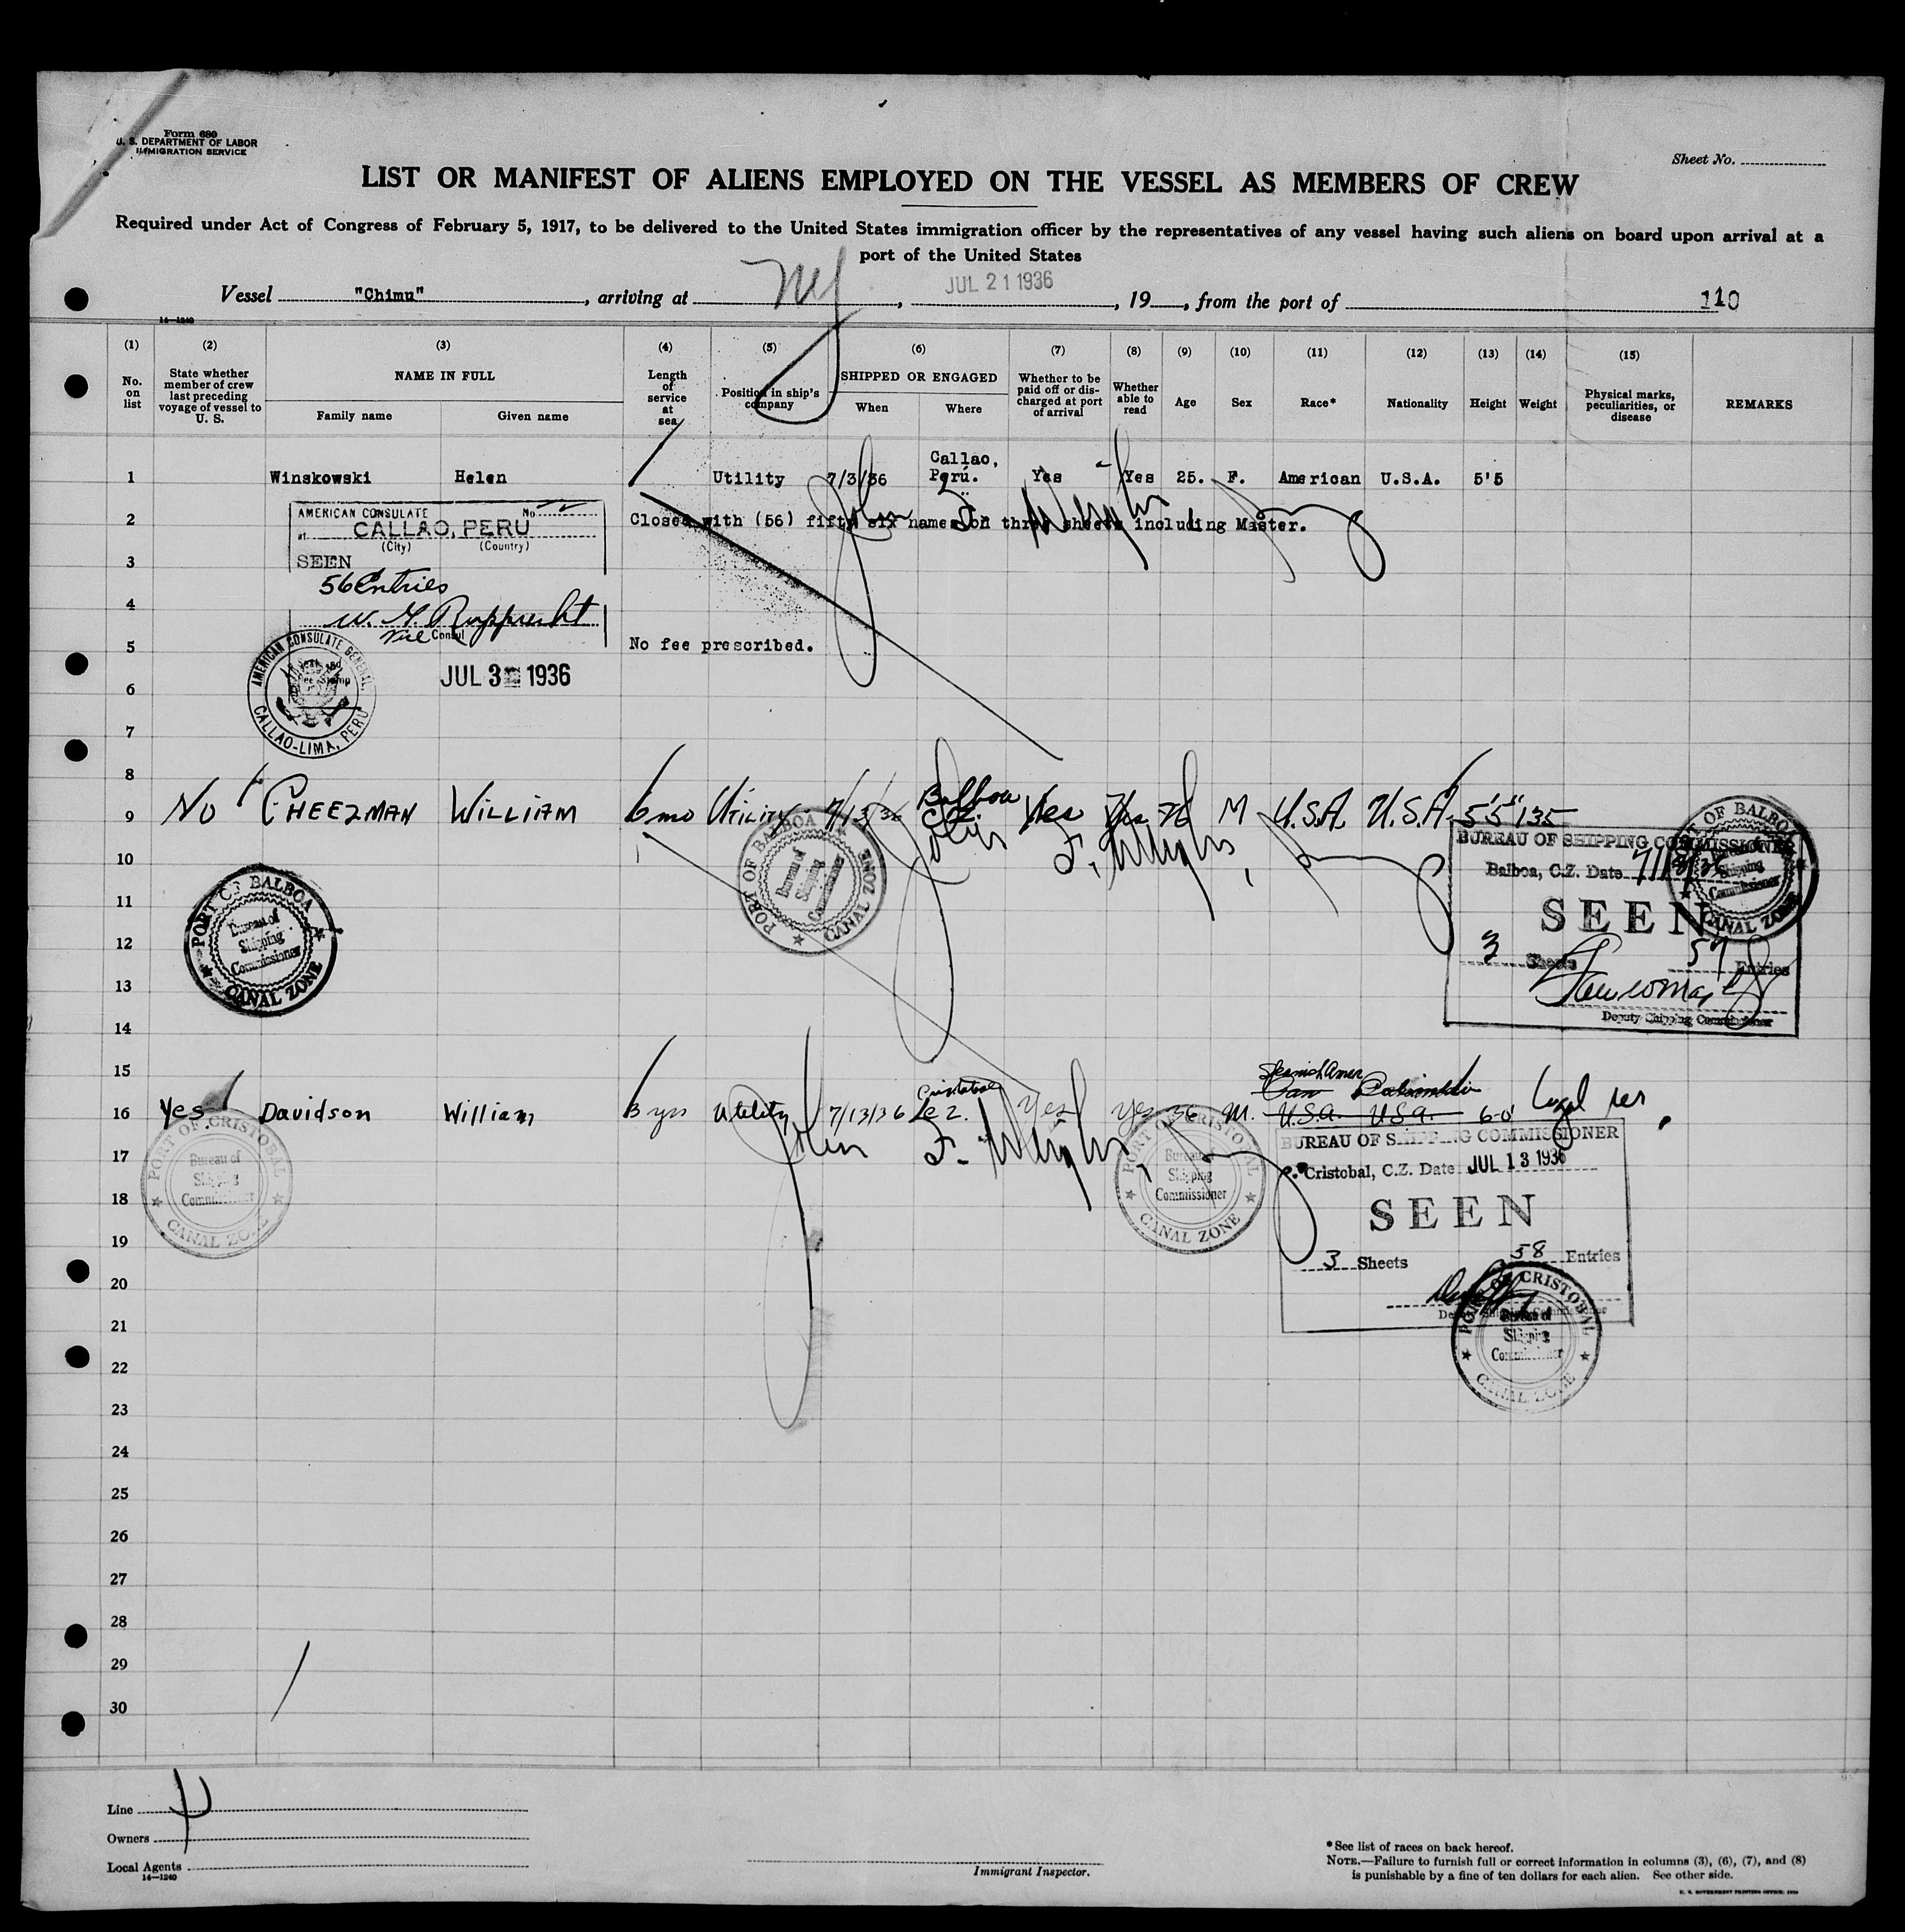 Form 680
U. S. DEPARTMENT OF LABOR
IMMIGRATION SERVICE
Sheet No.
LIST OR MANIFEST OF ALIENS EMPLOYED ON THE VESSEL AS MEMBERS OF CREW
Required under Act of Congress of February 5, 1917, to be delivered to the United States immigration officer by the representatives of any vessel having such aliens on board upon arrival at a
port of the United States
Vessel "Chimu", arriving at NY, JUL 21 1936, 19, from the port of 110
14—1240
(1) (2) (3) (4) (5) (6) (7) (8) (9) (10) (11) (12) (13) (14) (15)
No. on list
State whether member of crew last preceding voyage of vessel to U. S.
NAME IN FULL
Family name
Given name
Length of service at sea
Position in ship's company
SHIPPED OR ENGAGED
When
Where
Whether to be paid off or discharged at port of arrival
Whether able to read
Age
Sex
Race*
Nationality
Height
Weight
Physical marks, peculiarities, or disease
REMARKS
1 Winskowski Helen Utility 7/3/36 Callao, Perú. Yes Yes 25. F. American U.S.A. 5'5
2 Closed with (56) fifty six names on three sheets including Master.
AMERICAN CONSULATE No
at CALLAO, PERU
(City) (Country)
3 SEEN
56 Entries
4 W. G. Rupprecht
Vice Consul
5 No fee prescribed.
AMERICAN CONSULATE GENERAL, CALLAO-LIMA, PERU
JUL 3 1936
6
7
8
9 No CHEEZMAN WILLIAM 6 mo Utility 7/13/36 Balboa C.Z. Yes Yes 76 M U.S.A. U.S.A. 5'5" 135
John F. Murphy
PORT OF BALBOA Bureau of Shipping Commissioner CANAL ZONE
PORT OF BALBOA Bureau of Shipping Commissioner CANAL ZONE
PORT OF BALBOA Bureau of Shipping Commissioner CANAL ZONE
BUREAU OF SHIPPING COMMISSIONER
Balboa, C.Z. Date 7/13/36
SEEN
3 Sheets 57 Entries
Deputy Shipping Commissioner
10
11
12
13
14
15
16 Yes Davidson William 3 yrs Utility 7/13/36 Cristobal C Z. Yes Yes 36 M. Spanish Amer U.S.A. U.S.A. 6-0 Legal res
John F. Murphy
PORT OF CRISTOBAL Bureau of Shipping Commissioner CANAL ZONE
PORT OF CRISTOBAL Bureau of Shipping Commissioner CANAL ZONE
BUREAU OF SHIPPING COMMISSIONER
Cristobal, C.Z. Date JUL 13 1936
SEEN
3 Sheets 58 Entries
Deputy Shipping Commissioner
PORT OF CRISTOBAL Bureau of Shipping Commissioner CANAL ZONE
17
18
19
20
21
22
23
24
25
26
27
28
29
30
Line
Owners
Local Agents
14—1240
Immigrant Inspector.
*See list of races on back hereof.
NOTE.—Failure to furnish full or correct information in columns (3), (6), (7), and (8)
is punishable by a fine of ten dollars for each alien. See other side.